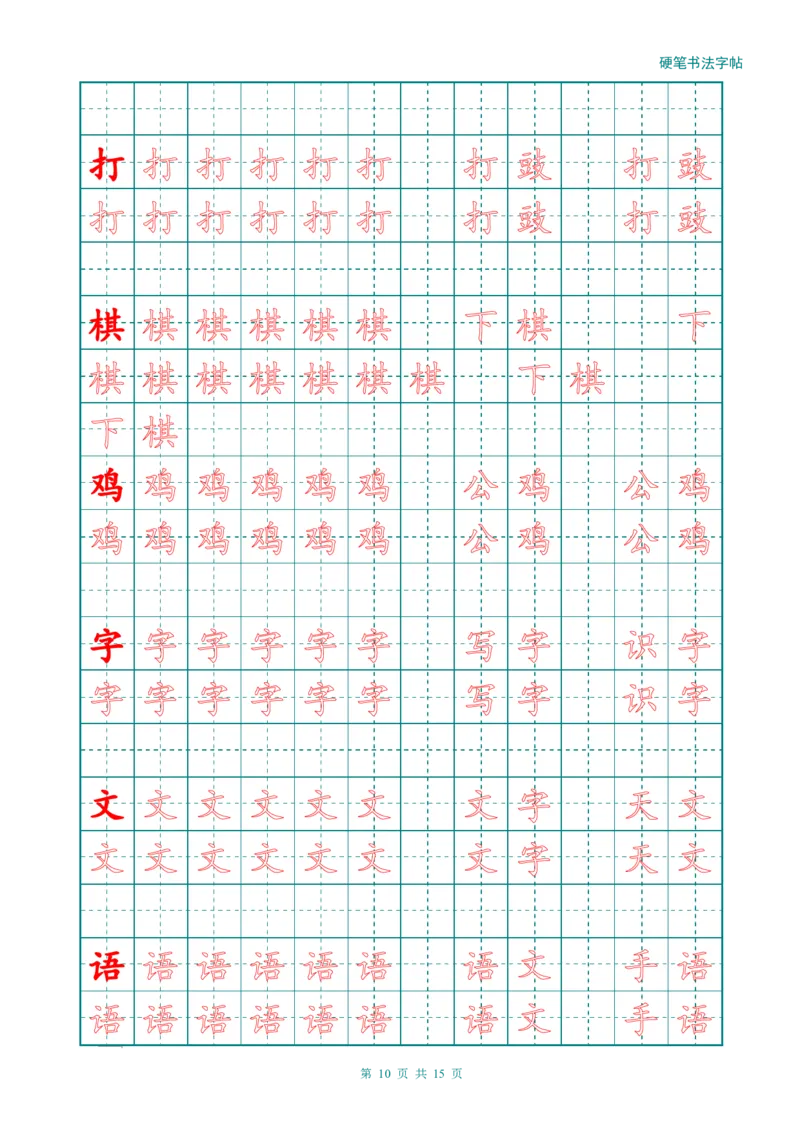 硬笔书法字帖
打打打打打打 打鼓 打鼓
打打打打打打 打鼓 打鼓
棋棋棋棋棋棋 下棋 下
棋棋棋棋棋棋棋 下棋
下棋
鸡鸡鸡鸡鸡鸡 公鸡 公鸡
鸡鸡鸡鸡鸡鸡 公鸡 公鸡
字字字字字字 写字 识字
字字字字字字 写字 识字
文文文文文文 文字 天文
文文文文文文 文字 天文
语语语语语语 语文 手语
语语语语语语 语文 手语
第 10 页 共 15 页